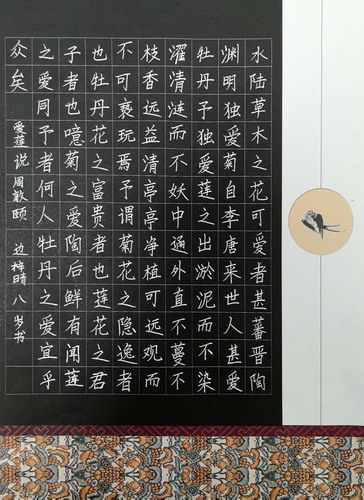 水陆草木之花可爱者甚蕃晋陶
渊明独爱菊自李唐来世人甚爱
牡丹予独爱莲之出淤泥而不染
濯清涟而不妖中通外直不蔓不
枝香远益清亭亭净植可远观而
不可亵玩焉予谓菊花之隐逸者
也牡丹花之富贵者也莲花之君
子者也噫菊之爱陶后鲜有闻莲
之爱同予者何人牡丹之爱宜乎
众矣 爱莲说 周敦颐 边梓晴 八岁书